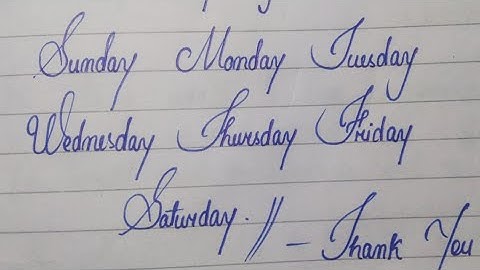 Sunday Monday Tuesday
Wednesday Thursday Friday
Saturday. //
- Thank You